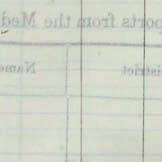 ports from the Med
istrict Name